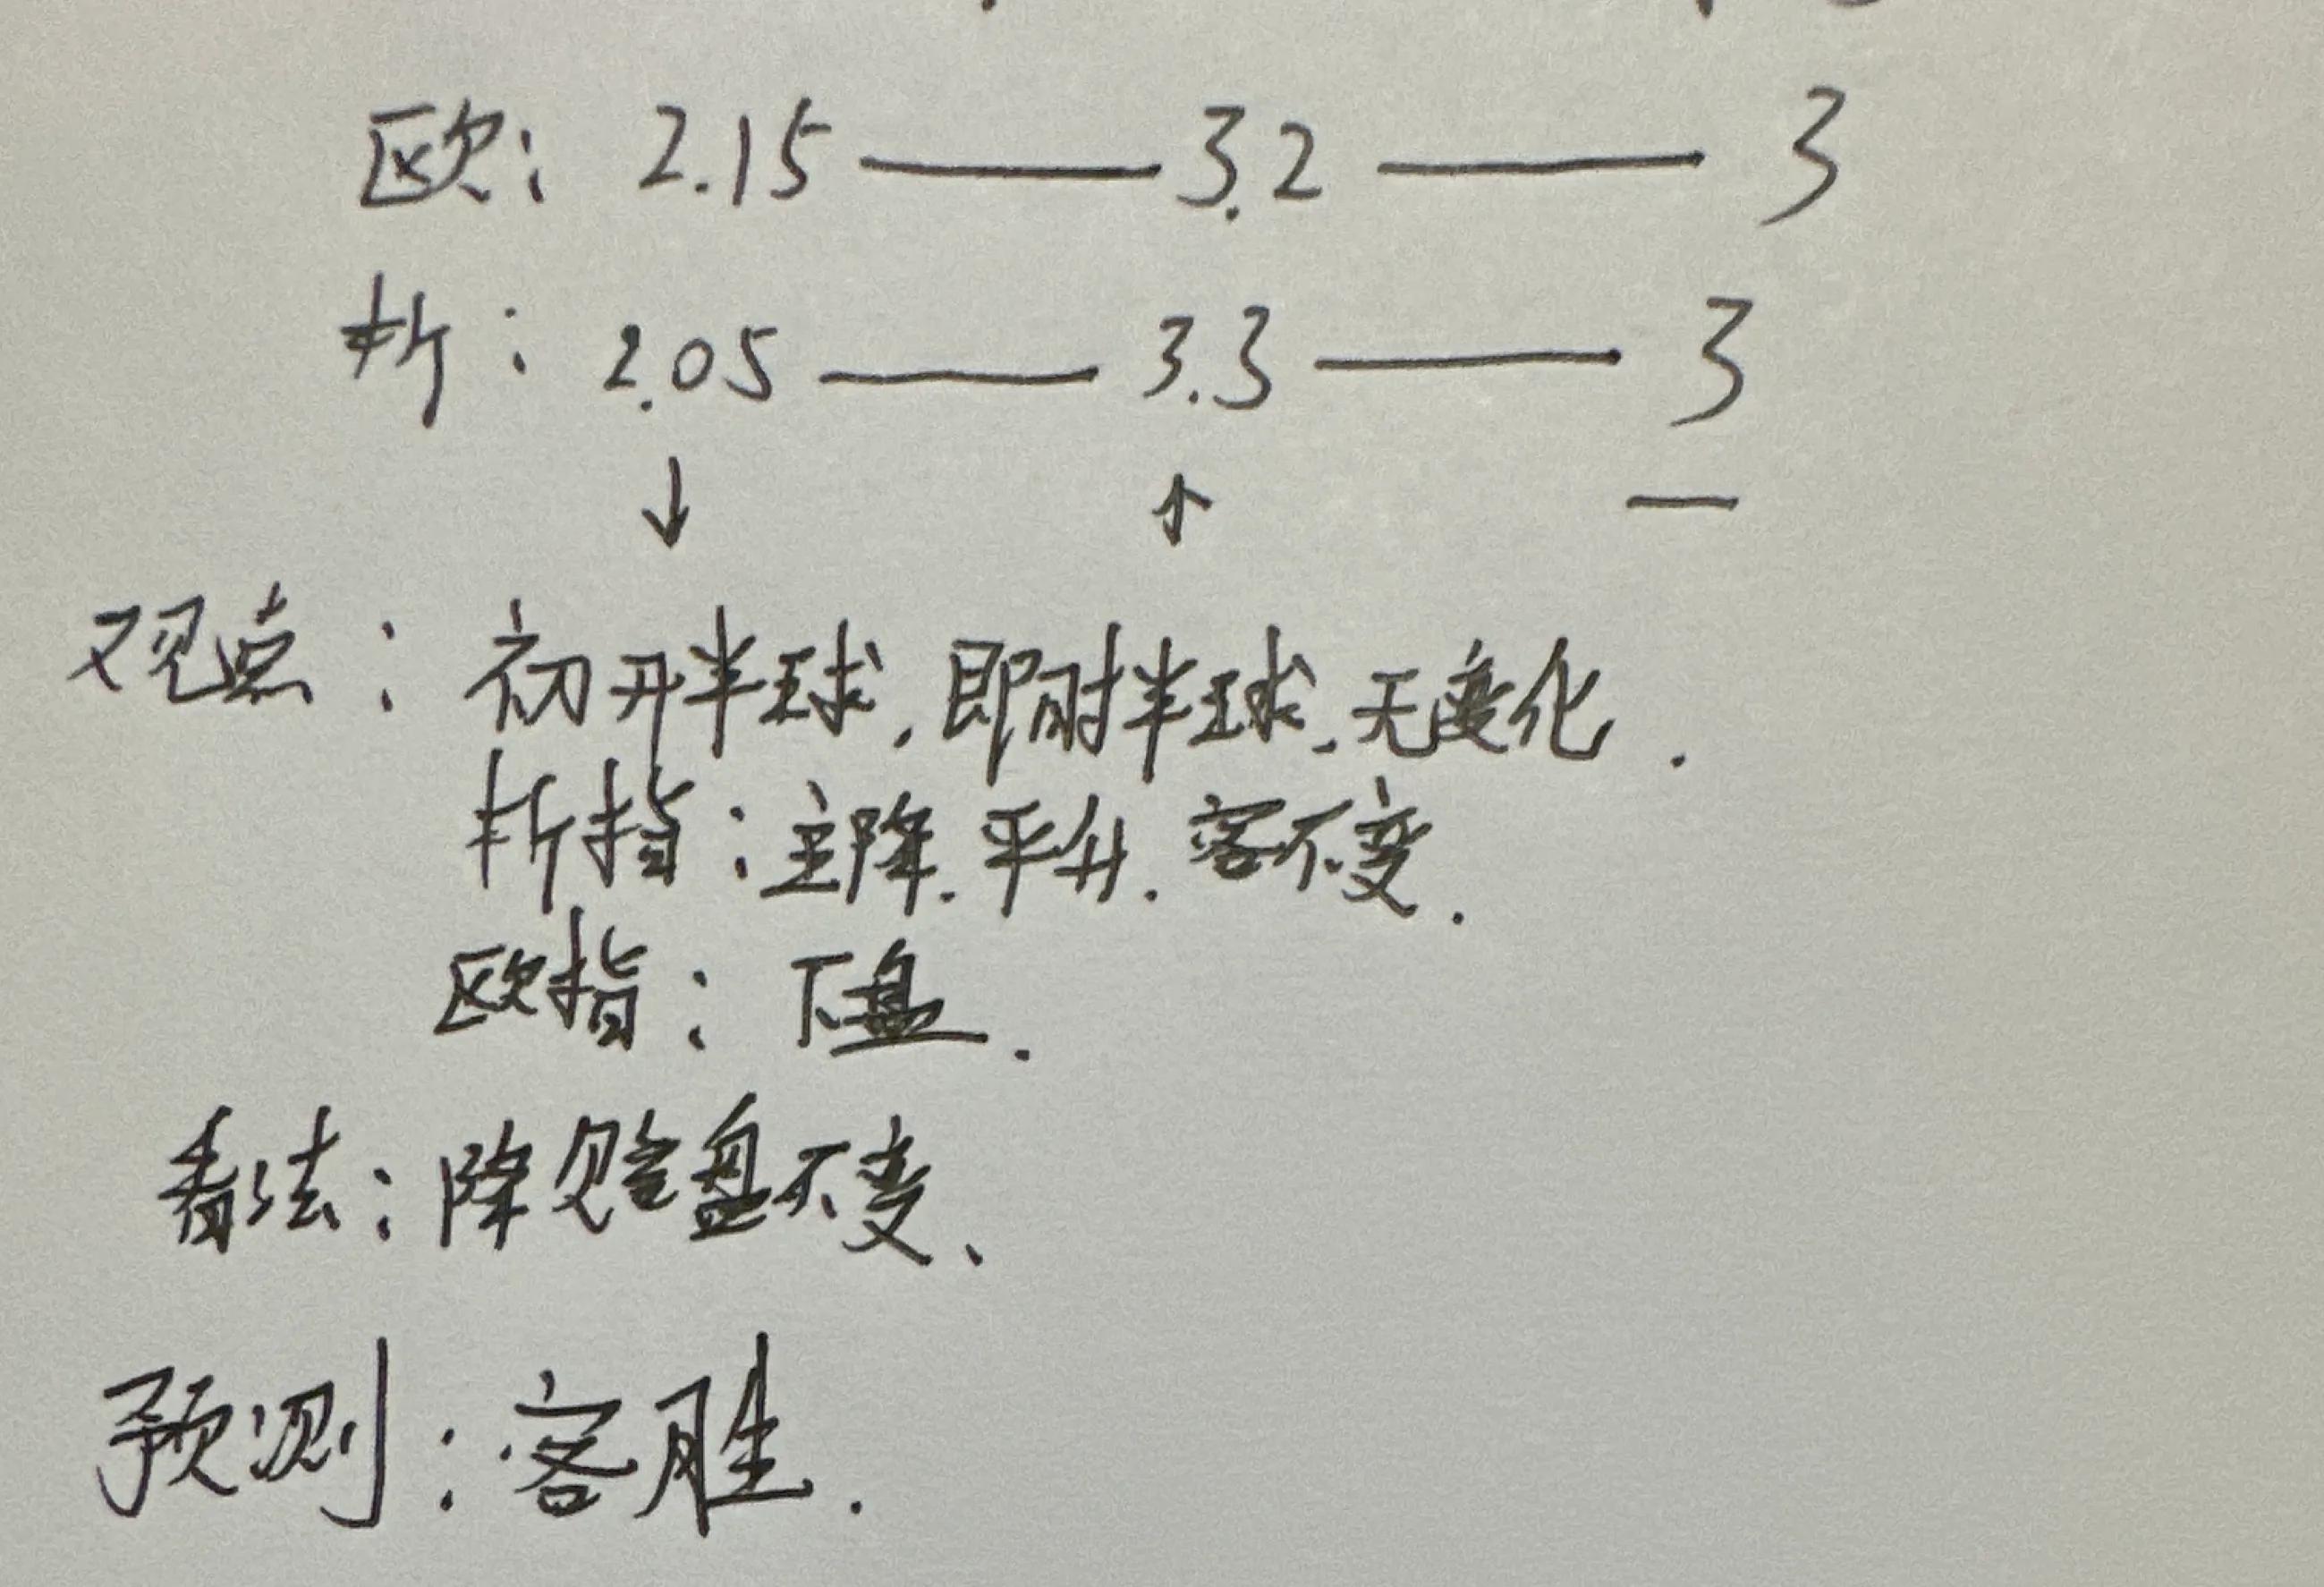 欧: 2.15 —— 3.2 —— 3
折: 2.05 —— 3.3 —— 3
↓ ↑ —
观点: 初开半球,即时半球.无变化.
折指:主降.平升.客不变.
欧指: 下盘.
看法:降贻盘不变、
预测:客胜.